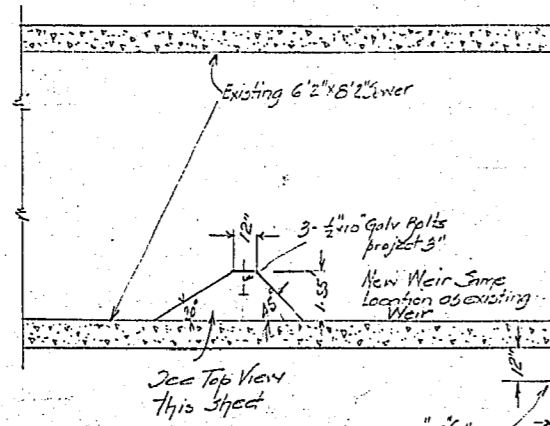 Existing 6'2"x8'2" Sewer
12"
3-½"x10" Galv Bolts
project 3"
New Weir Same
Location as existing
Weir
1.55'
30°
45°
See Top View
This Sheet
12"